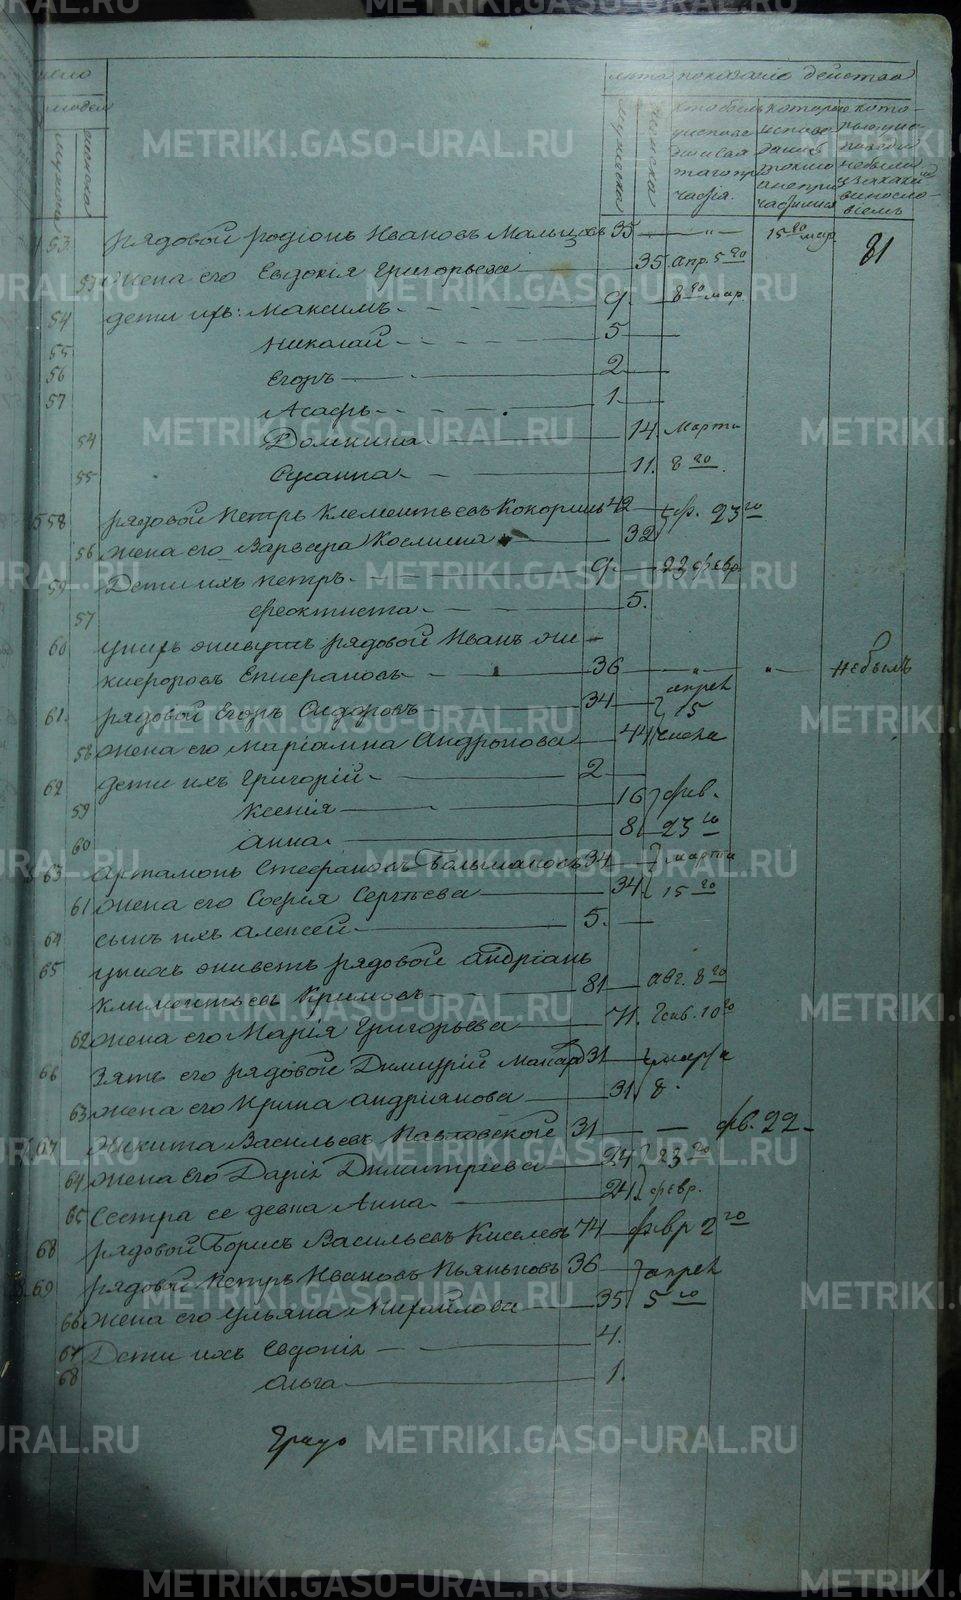 число
людей
мужеска
женска
лета
показало действо
мужеска
женска
кто былъ
у исповеди
и святаго
причастiя.
которые
исповедались
токмо
а не
причастились
кото-
рые у испо-
ведi
не были
и за какимъ
винословiемъ
81
53 рядовой родiонъ Ивановъ Мальцовъ 35 — " — 15го мар
53 Жена его Евдокiя Григорьева 35. апр. 5го
54 дети ихъ: Максимъ 9. — 8го мар.
55 Николай 5 —
56 Егоръ 2 —
57 Асафъ 1 —
54 Домнина 14. Марта
55 Сусанна 11. 8го.
58 рядовой Петръ Клементьевъ Кокоринъ 42 — фв. 23го
56 жена его Варвара Космина 32
59 Дети ихъ Петръ 9. — 23 февр
57 Феоктиста 5.
60 у нихъ живутъ рядовой Иванъ Ни-
кифоровъ Епифановъ 36 — " — " — небылъ
61. рядовой Егоръ Сидоровъ 34 — апрел
15
58 жена его Марiамна Андронова 44 числа
62 дети ихъ Григорiй 2 —
59 Ксенiя 16 фев.
60 Анна 8 23го
63 Артамонъ Стефановъ Большаковъ 34 — марта
61 жена его Софiя Сергеева 34 15го
64 сынъ ихъ Алексей 5. —
65 у нихъ живетъ рядовой Андрiанъ
Климентьевъ Кримовъ 81 — авг. 8го
62 жена его Марiя Григорьева 71. генв. 10го
66 Зять его рядовой Димитрiй Макар 31 — марта
63 жена его Ирина Андрiянова 31 8.
67 Никита Васильевъ Павловской 31 — — фв. 22 -
64 жена его Дарiя Димитрiева 24 23го
65 Сестра ее девка Анна 24 февр.
68 рядовой Борисъ Васильевъ Киселевъ 74 февр 2го
69 рядовой Петръ Ивановъ Пьянковъ 36 — апрел
66 жена его Ульяна Михайлова 35 5го
67 Дети ихъ Евдокiя 4.
68 Ольга 1.
Градо
METRIKI.GASO-URAL.RU